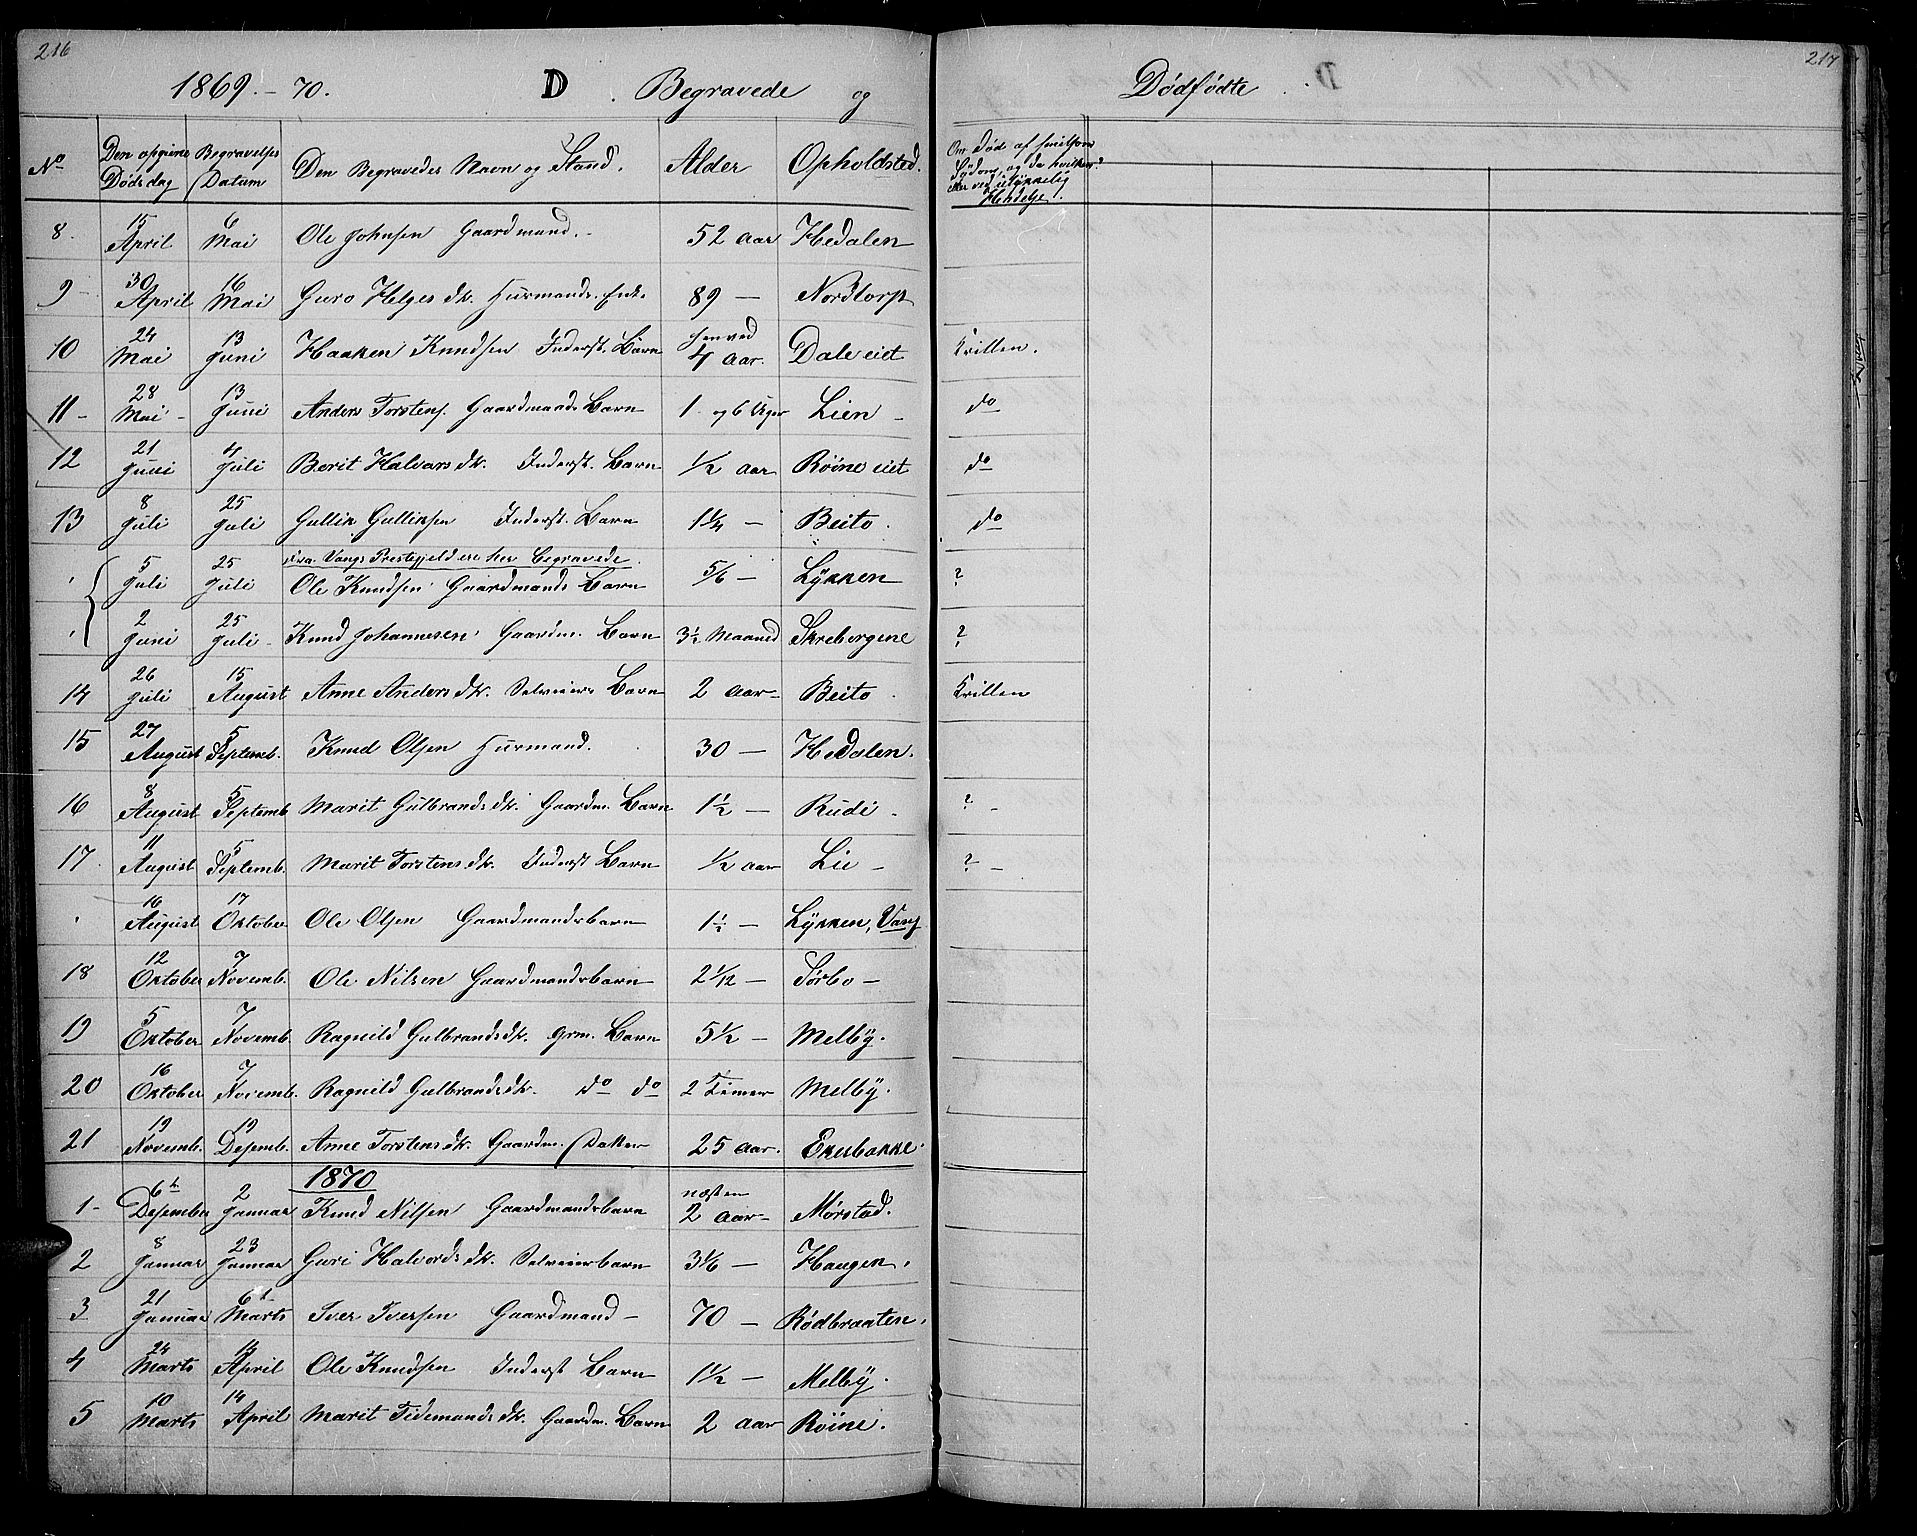 216
217
1869.-70. D. Begravede og Dødfødte
No Den opgivne Dødsdag Begravelses Datum Den Begravedes Navn og Stand. Alder Opholdsted. Om Død af smitsom Sydom, og da hvilken? eller ved ulykkelig Hendelse.
8. 15 April 6 Mai Ole Johnsen Gaardmand. 52 aar Hedalen
9 - 30 April 16 Mai Guro Helges dtr. Husmands. Enke 89 — Nordtorp
10 24 Mai 13 Juni Haaken Knudsen Inderst. Barn henved 4 aar. Dale eiet Krillen.
11 - 28 Mai - 13 Juni Anders Torstens. Gaardmands Barn 1 og 6 Uger Lien - do
12 21 Juni 4 Juli Berit Halvors dtr. Inderst. Barn 1/2 aar Røine eiet do
13 8 Juli 25 Juli Gullik Gulliksen Inderst. Barn 1 1/4 — Beito. do
fra Vangs Prestegjeld ere her Begravede
5 Juli 25 Juli Ole Knudsen Gaardmands Barn 5/6 — Lykken ?
2 Juni 25 Juli - Knud Johannesen Gaardm. Barn 3 1/2 Maaned Skreborgene ?
14 26 Juli 15 August Anne Anders dtr. Selveiers Barn 2 aar - Beito. Krillen
15 27 August 5 Septemb. Knud Olsen Husmand. 30 — Hedalen.
16 8 August 5 Septemb Marit Gulbrands dtr. Gaardm. Barn 1 1/2 — Rudi. ? -
17. 11 August 5 Septemb. Marit Torstens dtr. Inderst Barn 1/2 aar Lie - ? -
16 August 17 Oktober Ole Olsen Gaardmandsbarn 1 1/2 — Lykken, Vang
18 12 Oktober 7 Novemb. Ole Nilsen Gaardmandsbarn 2 1/12 — Sørbo —
19 5 Oktober 7 Novemb. Ragnild Gulbrandsdtr. Grm. Barn 5 1/2 — Melby.
20 16 Oktober 7 Novemb. Ragnild Gulbrandsdtr. do do 2 Timer Melby.
21 19 Novemb. 19 Desemb. Anne Torstens dtr. Gaardm. Datter 25 aar. Ekrebakke.
1870
1 - 6te Desember 2 Januar Knud Nilsen Gaardmandsbarn næsten 2 aar - Mørstad.
2 8 Januar 23 Januar Guri Halvords dtr. Selveierbarn 3 1/6 — Haugen.
3 21 Januar 6te Marts Iver Iversen Gaardmand — 70 — Rødbraaten.
4 24 Marts April Ole Knudsen Inderst Barn 1 1/2 — Melby.
5 10 Marts 14 April Marit Tidemands dtr. Gaardm. Barn 2 aar Røine.